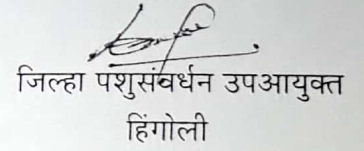 जिल्हा पशुसंवर्धन उपआयुक्त
हिंगोली